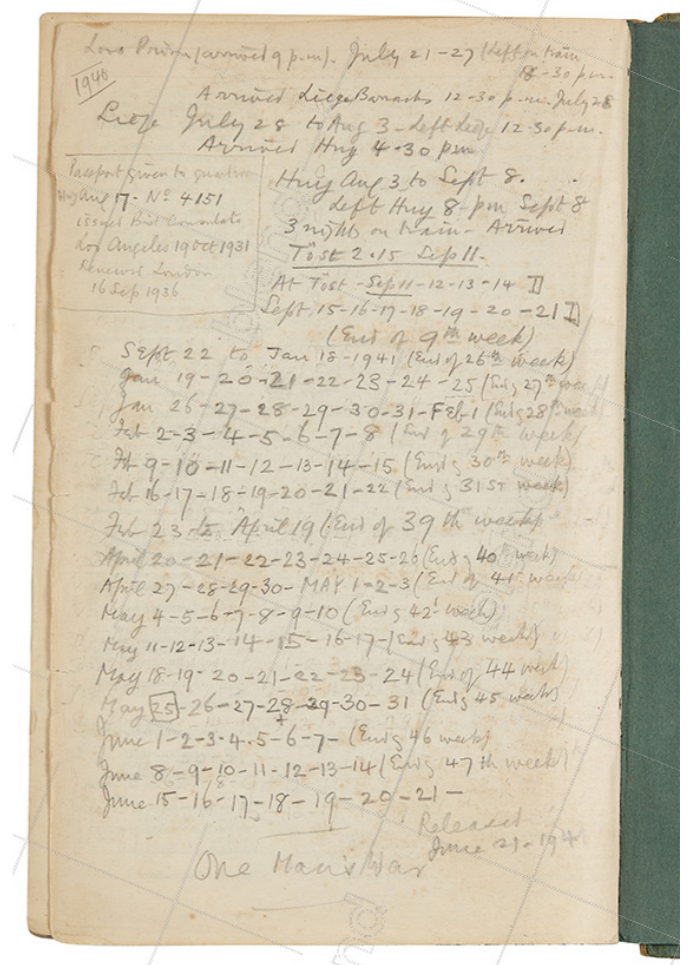 Loos Prison (arrived 9 p.m). July 21-27 (left on train
8-30 p.m.
1940
Arrived Liege Barracks 12-30 p.m. July 28
Liege July 28 to Aug 3 - left Liege 12-30 p.m.
Arrived Huy 4.30 pm
Passport given to
Huy Aug 17 - No 4151
issued Brit Consulate
Los Angeles 19 Oct 1931
Renewed London
16 Sep 1936
Huy Aug 3 to Sept 8.
left Huy 8 pm Sept 8
3 nights on train - Arrived
Tost 2.15 Sep 11.
At Tost - Sep 11-12-13-14
Sept 15-16-17-18-19-20-21
(End of 9th week)
Sept 22 to Jan 18-1941 (End of 26th week)
Jan 19-20-21-22-23-24-25 (End of 27th week
Jan 26-27-28-29-30-31-Feb-1 (End of 28th week
Feb 2-3-4-5-6-7-8 (End of 29th week)
Feb 9-10-11-12-13-14-15 (End of 30th week)
Feb 16-17-18-19-20-21-22 (End of 31st week)
Feb 23 to April 19 (End of 39th week)
April 20-21-22-23-24-25-26 (End of 40th week)
April 27-28-29-30-MAY 1-2-3 (End of 41st week)
May 4-5-6-7-8-9-10 (End of 42 week)
May 11-12-13-14-15-16-17- (End of 43 week)
May 18-19-20-21-22-23-24 (End of 44 week)
May 25-26-27-28-29-30-31 (End of 45 week)
June 1-2-3-4-5-6-7- (End of 46 week)
June 8-9-10-11-12-13-14 (End of 47th week)
June 15-16-17-18-19-20-21-
Released
June 21-194
One Man's War